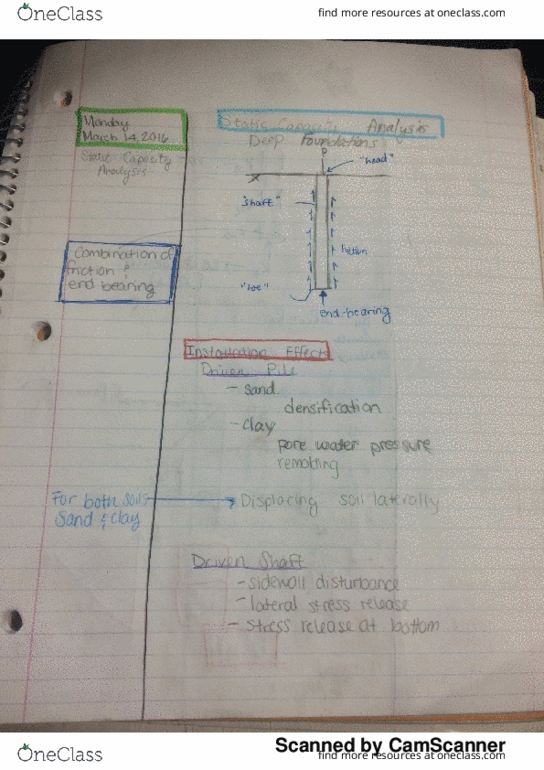 OneClass
find more resources at oneclass.com
Monday
March 14, 2016
Static Capacity
Analysis
Static Capacity Analysis
Deep Foundations
P
"head"
"shaft"
"toe"
end-bearing
Combination of
friction &
end bearing
Installation Effects
Driven Pile
- sand
densification
- clay
pore water pressure
remolding
For both soils
Sand & clay
Displacing soil laterally
Driven Shaft
- sidewall disturbance
- lateral stress release
- stress release at bottom
Scanned by CamScanner
OneClass
find more resources at oneclass.com